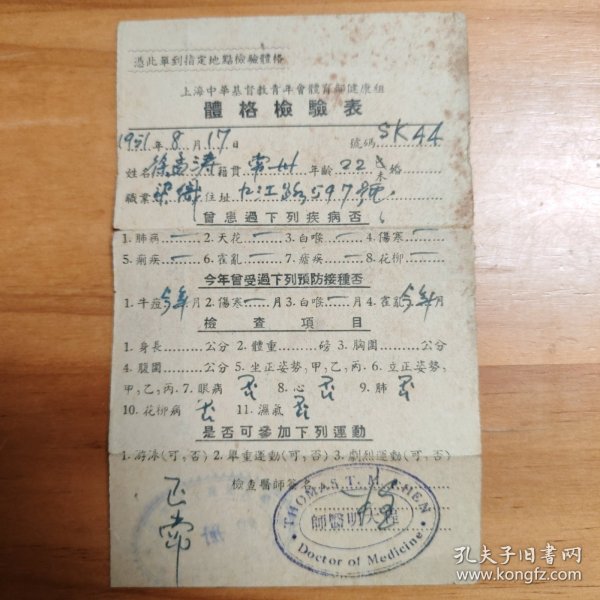 憑此單到指定地點檢驗體格
上海中華基督教青年會體育部健康組
體格檢驗表
1951年8月17日 號碼 SK44
姓名 徐 籍貫 常州 年齡 22 未婚
職業 染織 住址 九江路597號
曾患過下列疾病否
1. 肺病 一 2. 天花 一 3. 白喉 一 4. 傷寒 一
5. 痢疾 一 6. 霍亂 一 7. 瘧疾 一 8. 花柳 一
今年曾受過下列預防接種否
1. 牛痘 今年 月 2. 傷寒 一 月 3. 白喉 一 月 4. 霍亂 今年 月
檢查項目
1. 身長………公分 2. 體重………磅 3. 胸圍………公分
4. 腹圍………公分 5. 坐正姿勢，甲，乙，丙。 6. 立正姿勢，
甲，乙，丙。 7. 眼病 8. 心 9. 肺
10. 花柳病 11. 濕氣
是否可參加下列運動
1. 游泳(可，否) 2. 舉重運動(可，否) 3. 劇烈運動(可，否)
檢查醫師簽名
正常
THOMAS T. M. CHEN
師醫明天
Doctor of Medicine
孔夫子旧書网
www.kongfz.com